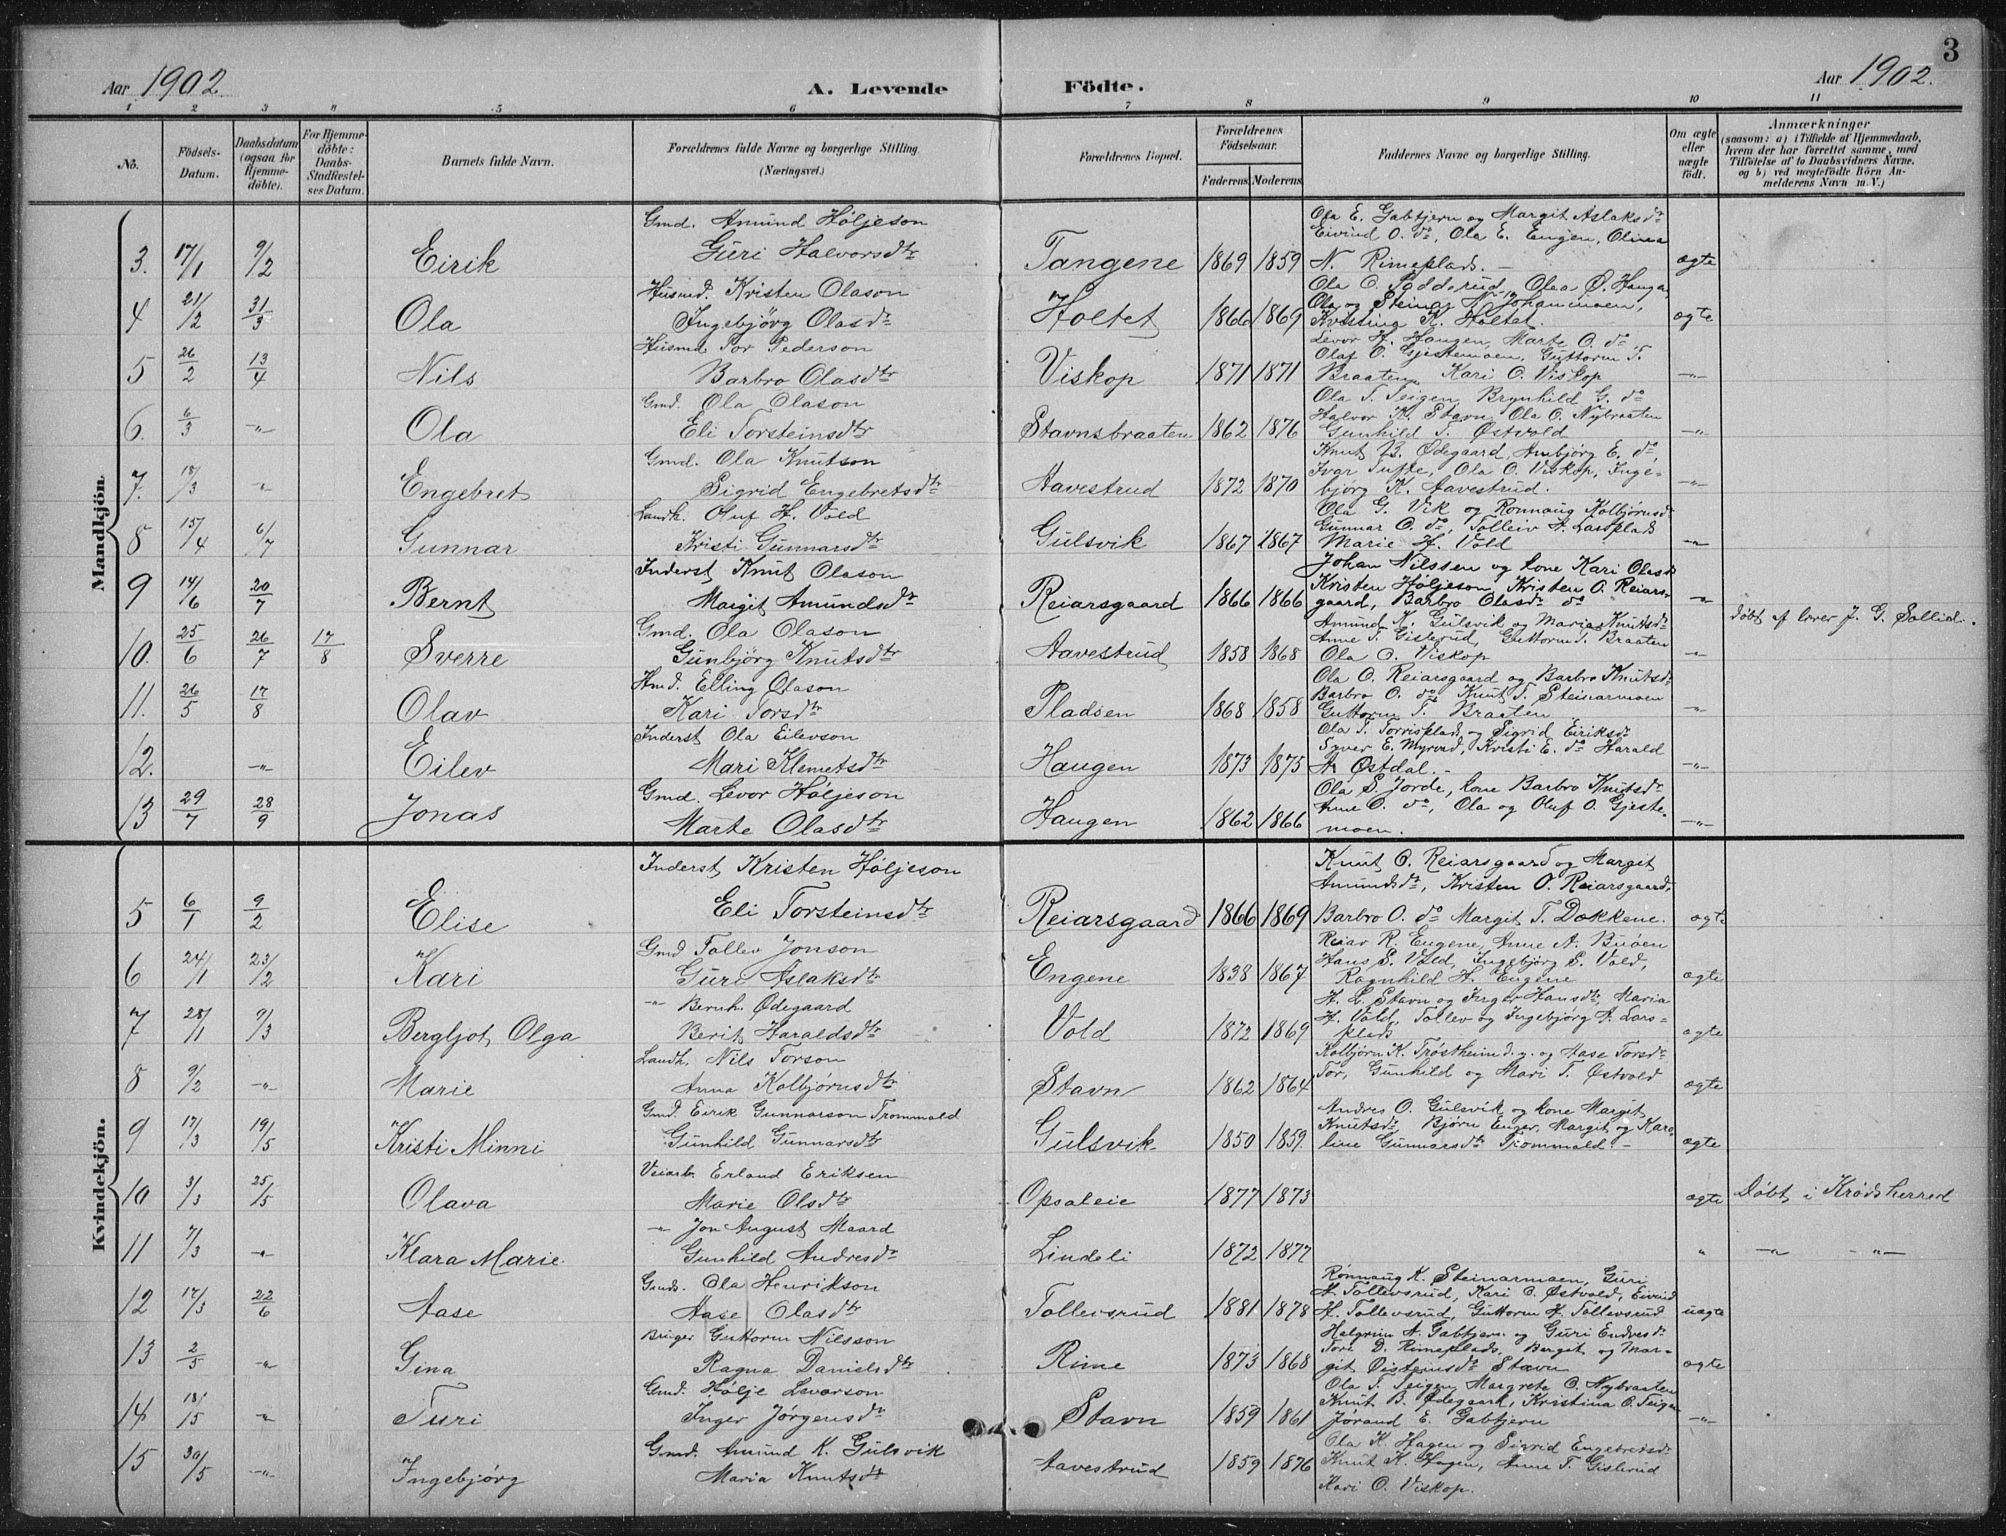 3
Aar 1902 A. Levende Födte. Aar 1902.
1 2 3 4 5 6 7 8 9 10 11
Nô. Födsels-Datum. Daabsdatum (ogsaa for Hjemme-döbte). For Hjemme-döbte: Daabs-Stadfæstel-ses Datum. Barnets fulde Navn. Forældrenes fulde Navne og borgerlige Stilling. (Næringsvei.) Forældrenes Bopæl. Forældrenes Födselsaar. Faderens Moderens Faddernes Navne og borgerlige Stilling. Om ægte eller uægte födt. Anmærkninger (saasom: a) i Tilfælde af Hjemmedaab, hvem der har forrettet samme, med Tilföielse af to Daabsvidners Navne. og b) ved uægtefödte Börn An-melderens Navn m. V.)
Mandkjön
3. 17/1 9/2 Eirik Gmd. Amund Höljeson Guri Halvorsdtr Tangene 1869 1859 Ola E. Gabtjern og Margit Aslaksdr Eivind O. do, Ola E. Engen, Olina N. Rimeplads. ægte
4 21/2 31/3 Ola Husmd. Kristen Olason Ingebjörg Olasdr Holtet 1866 1869 Ola O. Olea O. Hauga, Ola og Steinar N. Johanmoen, Kristina K. Holtet. ægte
5 26/2 13/4 Nils Husmd. Tor Pederson Barbro Olasdtr Viskop 1871 1871 Levor H. Haugen, Marte O. do Olaf O. Gjestemoen, Guttorm T. Braaten, Kari O. Viskop -"-
6. 6/3 -"- Ola Gmd. Ola Olason Eli Torsteinsdtr Stavnsbraaten 1862 1876 Ola T. Teigen, Brynhild G. do Halvor K. Stavn, Ola O. Nybraaten Gunhild T. Østvold -"-
7. 18/3 -"- Engebret Gmd. Ola Knutson Sigrid Engebretsdtr Aavestrud 1872 1870 Knut B. Ødegaard, Ambjörg E. do, Ivar Tufte, Ola O. Viskop, Inge-björg K. Aavestrud. -"-
8 15/4 6/7 Gunnar Landh. Oluf H. Vold Kristi Gunnarsdtr Gulsvik 1867 1867 Ola G. Vik og Ronnaug Kolbjörnsd Gunnar O. do, Tolleiv A. Larsplads Marie H. Vold -"-
9 14/6 20/7 Bernt Inderst Knut Olason Margit Amundsdr Reiarsgaard 1866 1866 Johan Nilssen og kone Kari Olasd Kristen Höljeson, Kristen O. Reiars-gaard, Barbro Olasdr do -"-
10. 25/6 26/7 17/8 Sverre Gmd. Ola Olason Gunbjörg Knutsdtr Aavestrud 1858 1868 Amund K. Gulsvik og Maria Knutsdr Anne T. Gislerud, Guttorm T. Braaten Ola O. Viskop -"- Døbt af lærer J. G. Sollid.
11. 26/5 17/8 Olav Hmd. Elling Olason Kari Torsdtr Pladsen 1868 1858 Ola O. Reiarsgaard og Barbro Knutsdr Barbro O. do Knut T. Steinarmoen Guttorm T. Braaten -"-
12. -"- Eilev Inderst Ola Eilevson Mari Klemetsdtr Haugen 1873 1875 Ola T. Torrisplads og Sigrid Eiriksdr Syver E. Myrvd, Kristi E. do Harald A. Østdal. -"-
13 29/7 28/9 Jonas Gmd. Levor Höljeson Marte Olasdtr Haugen 1862 1866 Ola S. Jorde, kone Barbro Knutsdr Anne O. do, Ola og Oluf O. Gjeste-moen. -"-
Kvindekjön.
5 6/1 9/2 Elise Inderst Kristen Höljeson Eli Torsteinsdtr Reiarsgaard 1866 1869 Knut O. Reiarsgaard og Margit Amundsdr, Kristen O. Reiarsgaard, Barbro O. do Margit T. Dokkene. ægte
6 24/1 23/2 Kari Gmd Tollev Jonson Guri Aslaksdtr Engene 1838 1867 Reiar R. Eugene, Anne A. Buöen Hans S. Vold, Ingebjörg S. Vold, Ragnhild H. Eugene ægte
7 28/1 9/3 Bergljot Olga -"- Bernh. Ødegaard Berit Haraldsdtr Vold 1872 1869 H. L. Stavn og Inger Hansdr, Maria H. Vold, Tollev og Ingebjörg A. Lars-plads ægte
8 9/2 -"- Marie Landh. Nils Torson Anna Kolbjörnsdtr Stavn 1862 1864 Kolbjörn K. Tröstheim d. y. og Aase Torsdr Tor, Gunhild og Mari T. Østvold ægte
9 17/3 19/5 Kristi Minni Gmd. Eirik Gunnarson Trommald Gunhild Gunnarsdtr Gulsvik 1850 1859 Andres O. Gulsvik og kone Margit Knutsdr Björn Enger, Margit og Karo-line Gunnarsdr Trommald. ægte
10 3/3 25/5 Olava Veiarb. Erland Eriksen Marie Olsdtr Opsaleie 1877 1873 ægte Døbt i Krødsherred
11 7/3 -"- Klara Marie -"- Jon August Maard Gunhild Andresdr Lindeli 1872 1877 " -"- -"-
12 17/3 22/6 Aase Gmds. Ola Henrikson Aase Olasdtr Tollevsrud 1881 1878 Rönnaug K. Steinarmoen, Guri H. Tollevsrud, Kari O. Østvold, Eivind H. Tollevsrud, Guttorm H. Tollevsrud uægte
13 2/5 -"- Gina Bruger Guttorm Nilsson Ragna Danielsdtr Rime 1873 1868 Helgrim A. Gabtjern og Guri Endresdr Tore D. Rimeplads, Bergit og Mar-git Øisteinsdr Stavn ægte
14 18/5 -"- Turi Gmd. Hølje Levorson Inger Jørgensdr Stavn 1859 1861 Ola T. Teigen, Margrete O. Nybraaten Knut B. Ødegaard, Kristina O. Teigen Jörand E. Gabtjern -"-
15 30/5 -"- Ingebjørg Gmd. Amund K. Gulsvik Maria Knutsdt Aavestrud 1859 1876 Ola K. Hagen og Sigrid Engebretsdr Knut K. Hagen, Anne T. Gislerud Kari O. Viskop.